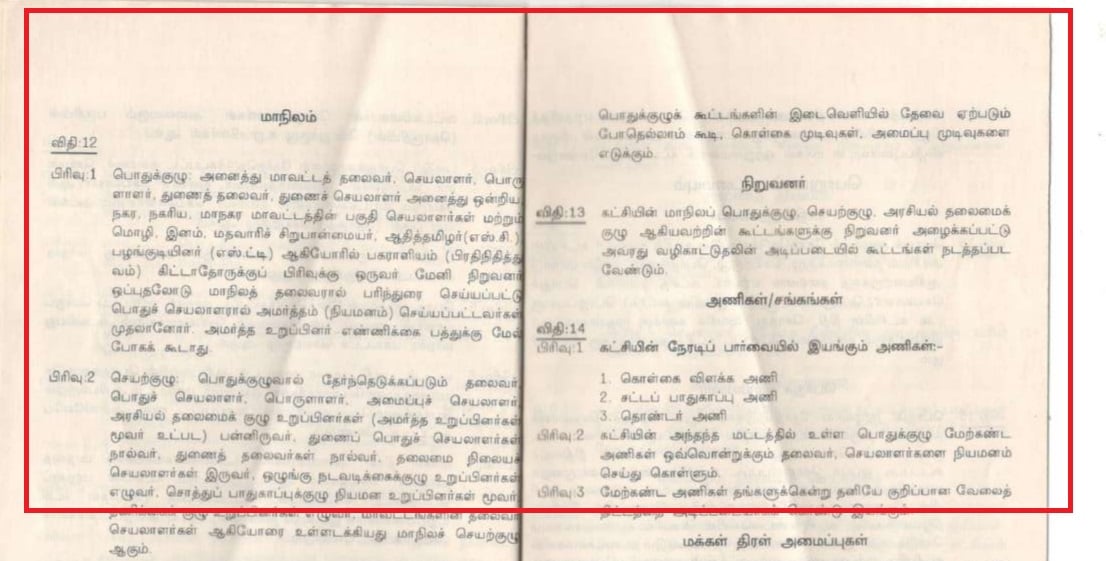 மாநிலம்
விதி:12
பிரிவு:1 பொதுக்குழு: அனைத்து மாவட்டத் தலைவர், செயலாளர், பொரு
ளாளர், துணைத் தலைவர், துணைச் செயலாளர் அனைத்து ஒன்றிய,
நகர, நகரிய, மாநகர மாவட்டத்தின் பகுதி செயலாளர்கள் மற்றும்
மொழி, இனம், மதவாரிச் சிறுபான்மையர், ஆதித்தமிழர்(எஸ்.சி.),
பழங்குடியினர் (எஸ்.ட்டி) ஆகியோரில் பகராளியம் (பிரதிநிதித்து
வம்) கிட்டாதோருக்குப் பிரிவுக்கு ஒருவர் மேனி நிறுவனர்
ஒப்புதலோடு மாநிலத் தலைவரால் பரிந்துரை செய்யப்பட்டு
பொதுச் செயலாளரால் அமர்த்தம் (நியமனம்) செய்யப்பட்டவர்கள்
முதலானோர். அமர்த்த உறுப்பினர் எண்ணிக்கை பத்துக்கு மேல்
போகக் கூடாது.
பிரிவு:2 செயற்குழு: பொதுக்குழுவால் தேர்ந்தெடுக்கப்படும் தலைவர்,
பொதுச் செயலாளர், பொருளாளர், அமைப்புச் செயலாளர்,
அரசியல் தலைமைக் குழு உறுப்பினர்கள் (அமர்த்த உறுப்பினர்கள்
மூவர் உட்பட) பன்னிருவர், துணைப் பொதுச் செயலாளர்கள்
நால்வர், துணைத் தலைவர்கள் நால்வர், தலைமை நிலையச்
செயலாளர்கள் இருவர், ஒழுங்கு நடவடிக்கைக்குழு உறுப்பினர்கள்
எழுவர், சொத்துப் பாதுகாப்புக்குழு நியமன உறுப்பினர்கள் மூவர்,
குழு உறுப்பினர்கள் எழுவர், மாவட்டங்களின் தலைவர்
செயலாளர்கள் ஆகியோரை உள்ளடக்கியது மாநிலச் செயற்குழு
ஆகும்.
பொதுக்குழுக் கூட்டங்களின் இடைவெளியில் தேவை ஏற்படும்
போதெல்லாம் கூடி, கொள்கை முடிவுகள், அமைப்பு முடிவுகளை
எடுக்கும்.
நிறுவனர்
விதி:13 கட்சியின் மாநிலப் பொதுக்குழு, செயற்குழு, அரசியல் தலைமைக்
குழு ஆகியவற்றின் கூட்டங்களுக்கு நிறுவனர் அழைக்கப்பட்டு
அவரது வழிகாட்டுதலின் அடிப்படையில் கூட்டங்கள் நடத்தப்பட
வேண்டும்.
அணிகள்/சங்கங்கள்
விதி:14
பிரிவு:1 கட்சியின் நேரடிப் பார்வையில் இயங்கும் அணிகள்:-
1. கொள்கை விளக்க அணி
2. சட்டப் பாதுகாப்பு அணி
3. தொண்டர் அணி
பிரிவு:2 கட்சியின் அந்தந்த மட்டத்தில் உள்ள பொதுக்குழு மேற்கண்ட
அணிகள் ஒவ்வொன்றுக்கும் தலைவர், செயலாளர்களை நியமனம்
செய்து கொள்ளும்.
பிரிவு:3 மேற்கண்ட அணிகள் தங்களுக்கென்று தனியே குறிப்பான வேலைத்
மக்கள் திரள் அமைப்புகள்